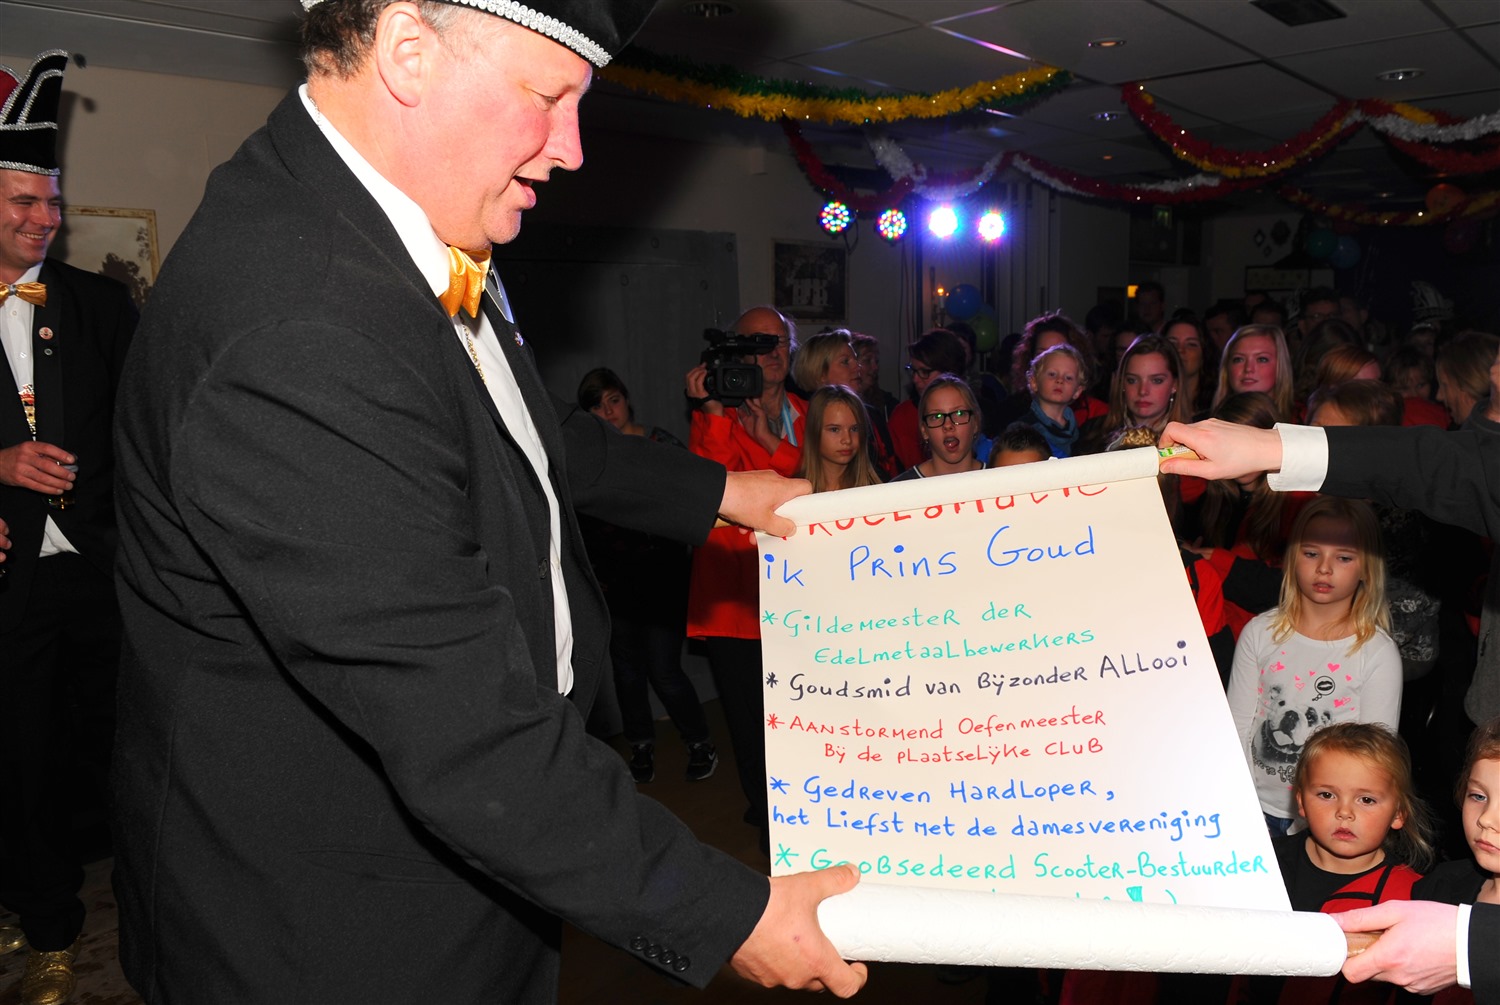 PROCLAMATIE
ik PRins GOud
* GildeMeesteR deR
EdelmetaalbewerkeRs
* Goudsmid van Bÿzonder ALLooi
* AANstoRMend OefenmeesteR
Bÿ de pLaatseLÿKe CLuB
* GedReven HaRdLopeR,
het Liefst Met de damesveReniging
* GeoBsedeeRd ScooteR-BestuuRdeR